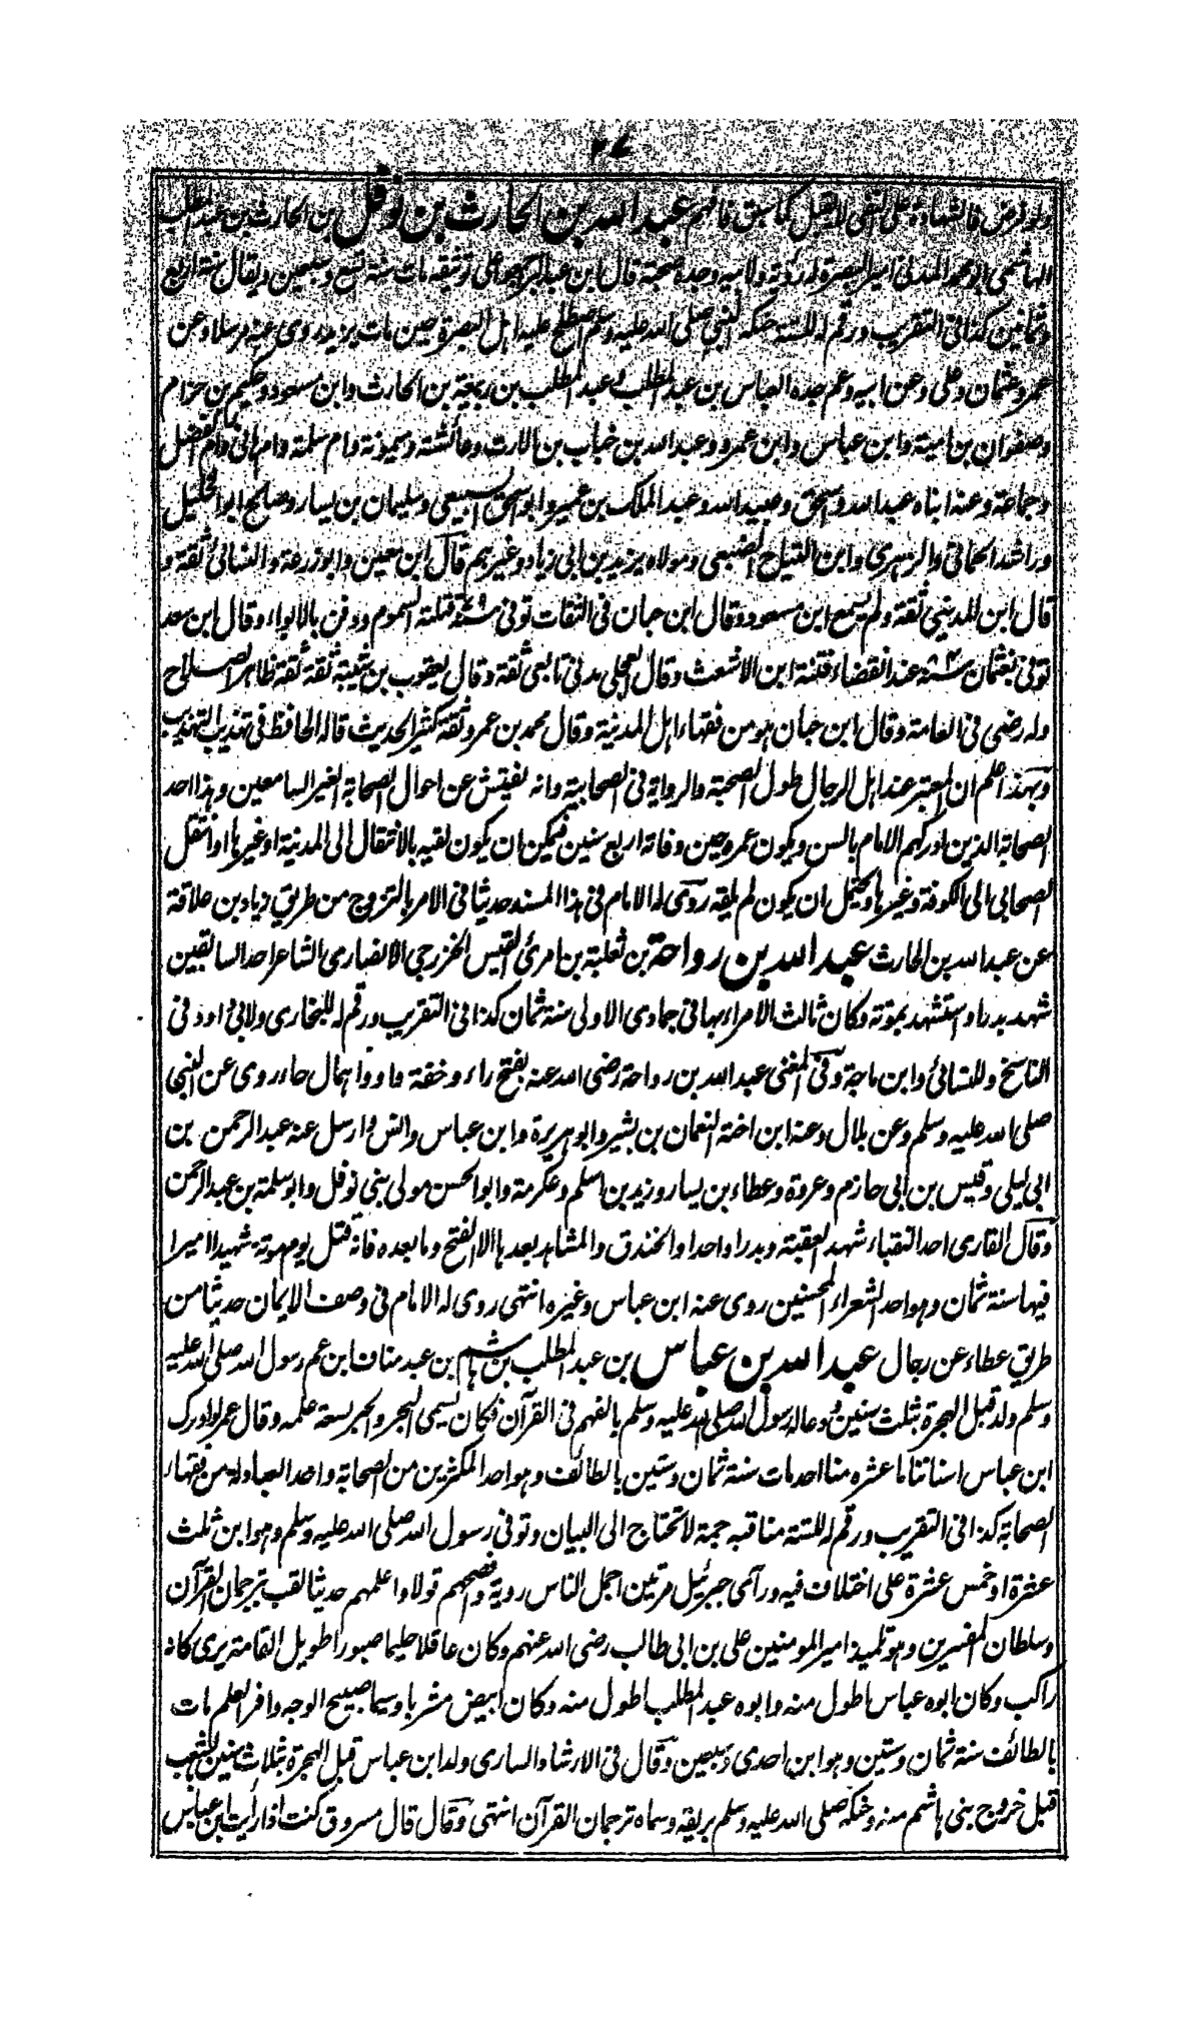 ولو فرض فالشهادة على النفى لا تقبل كما سبق فافهم عبد الله بن الحارث بن نوفل بن الحارث بن عبد المطلب
الهاشمى ابو محمد المدنى امير البصرة له رؤية ولابيه وجده صحبة قال ابن عبد البر اجمعوا على توثيقه مات سنة تسع وسبعين ويقال سنة اربع
وثمانين كذا فى التقريب ورقم له للستة حنكه النبى صلى الله عليه وسلم اصطلح عليه اهل البصرة حين مات يزيد روى عنه مرسلا وعن
عمر وعثمان وعلى وعن ابيه وعم جده العباس بن عبد المطلب وعبد المطلب بن ربيعة بن الحارث وابن مسعود وحكيم بن حزام
وصفوان بن امية وابن عباس وابن عمرو وعبد الله بن خباب بن الارت وعائشة وميمونة وام سلمة وام هانى وام الفضل
وجماعة وعنه ابناه عبد الله واسحق وعبيد الله وعبد الملك بن عمير وابو اسحق السبيعى وسليمان بن يسار وصالح ابو الخليل
وراشد الحمانى والزهرى وابن التياح الضبعى ومولاه يزيد بن ابى زياد وغيرهم قال ابن معين وابو زرعة والنسائى ثقة و
قال ابن المدينى ثقة ولم يسمع ابن مسعود وقال ابن حبان فى الثقات توفى سنة ٧٩ قتلته السموم ودفن بالابواء وقال ابن سعد
توفى بعمان سنة ٨٤ عند انقضاء فتنة ابن الاشعث وقال العجلى مدنى تابعى ثقة وقال يعقوب بن شيبة ثقة ثقة ظاهر الصلاح
وله رضى فى العامة وقال ابن حبان هو من فقهاء اهل المدينة وقال محمد بن عمر وثقة كثير الحديث قاله الحافظ فى تهذيب التهذيب
وبهذا اعلم ان المعتبر عند اهل الرجال طول الصحبة والرواية فى الصحابية وانه لفيتش عن احوال الصحابة الغير السامعين وهذا احد
الصحابة الذين ادركهم الامام بالسن ويكون عمره حين وفاته اربع سنين فيمكن ان يكون لقيه بالانتقال الى المدينة او غيرها او انتقل
الصحابى الى الكوفة وغيرها ويحتمل ان يكون لم يلقه روى له الامام فى هذا المسند حديثا فى الامر بالتزوج من طريق زياد بن علاقة
عن عبد الله بن الحارث عبد الله بن رواحة بن ثعلبة بن امرئ القيس الخزرجى الانصارى الشاعر احد السابقين
شهد بدرا واستشهد بموتة وكان ثالث الامراء بها فى جمادى الاولى سنة ثمان كذا فى التقريب ورقم له للبخارى ولابى داود فى
الناسخ وللنسائى وابن ماجة وفى المغنى عبد الله بن رواحة رضى الله عنه بفتح راء وخفة واو واهمال حاء روى عن النبى
صلى الله عليه وسلم وعن بلال وعنه ابن اخته النعمان بن بشير وابو هريرة وابن عباس وانس وارسل عنه عبد الرحمن بن
ابى ليلى وقيس بن ابى حازم وعروة وعطاء بن يسار وزيد بن اسلم وعكرمة وابو الحسن مولى بنى نوفل وابو سلمة بن عبد الرحمن
وقال القارى احد النقباء شهد العقبة وبدرا واحدا والخندق والمشاهد بعدها الا الفتح وما بعده فانه قتل يوم موته شهيدا اميرا
فيها سنة ثمان وهو احد الشعراء المحسنين روى عنه ابن عباس وغيره انتهى روى له الامام فى وصف الايمان حديثا من
طريق عطاء عن رجال عبد الله بن عباس بن عبد المطلب بن هاشم بن عبد مناف ابن عم رسول الله صلى الله عليه
وسلم ولد قبل الهجرة بثلث سنين ودعا له رسول الله صلى الله عليه وسلم بالفهم فى القرآن فكان يسمى البحر والحبر لسعة علمه وقال عمر لو ادرك
ابن عباس اسناننا ما عشره منا احد مات سنة ثمان وستين بالطائف وهو احد المكثرين من الصحابة واحد العبادلة من فقهاء
الصحابة كذا فى التقريب ورقم له للستة مناقبه جمة لا تحتاج الى البيان وتوفى رسول الله صلى الله عليه وسلم وهو ابن ثلث
عشرة او خمس عشرة على اختلاف فيه ورآى جبرئيل مرتين اجمل الناس روية وافصحهم قولا واعلمهم حديثا لقب بترجمان القرآن
وسلطان المفسرين وهو تلميذ امير المومنين على بن ابى طالب رضى الله عنهم وكان عاقلا حليما صبورا طويل القامة يرى كانه
راكب وكان ابوه عباس اطول منه وابوه عبد المطلب اطول منه وكان ابيض مشربا وسيما صبيح الوجه وافر العلم مات
بالطائف سنة ثمان وستين وهو ابن احدى وسبعين وقال فى الارشاد السارى ولد ابن عباس قبل الهجرة بثلاث سنين بالشعب
قبل خروج بنى هاشم منه وحنكه صلى الله عليه وسلم بريقه وسماه ترجمان القرآن انتهى وقال قال مسروق كنت اذا رأيت ابن عباس